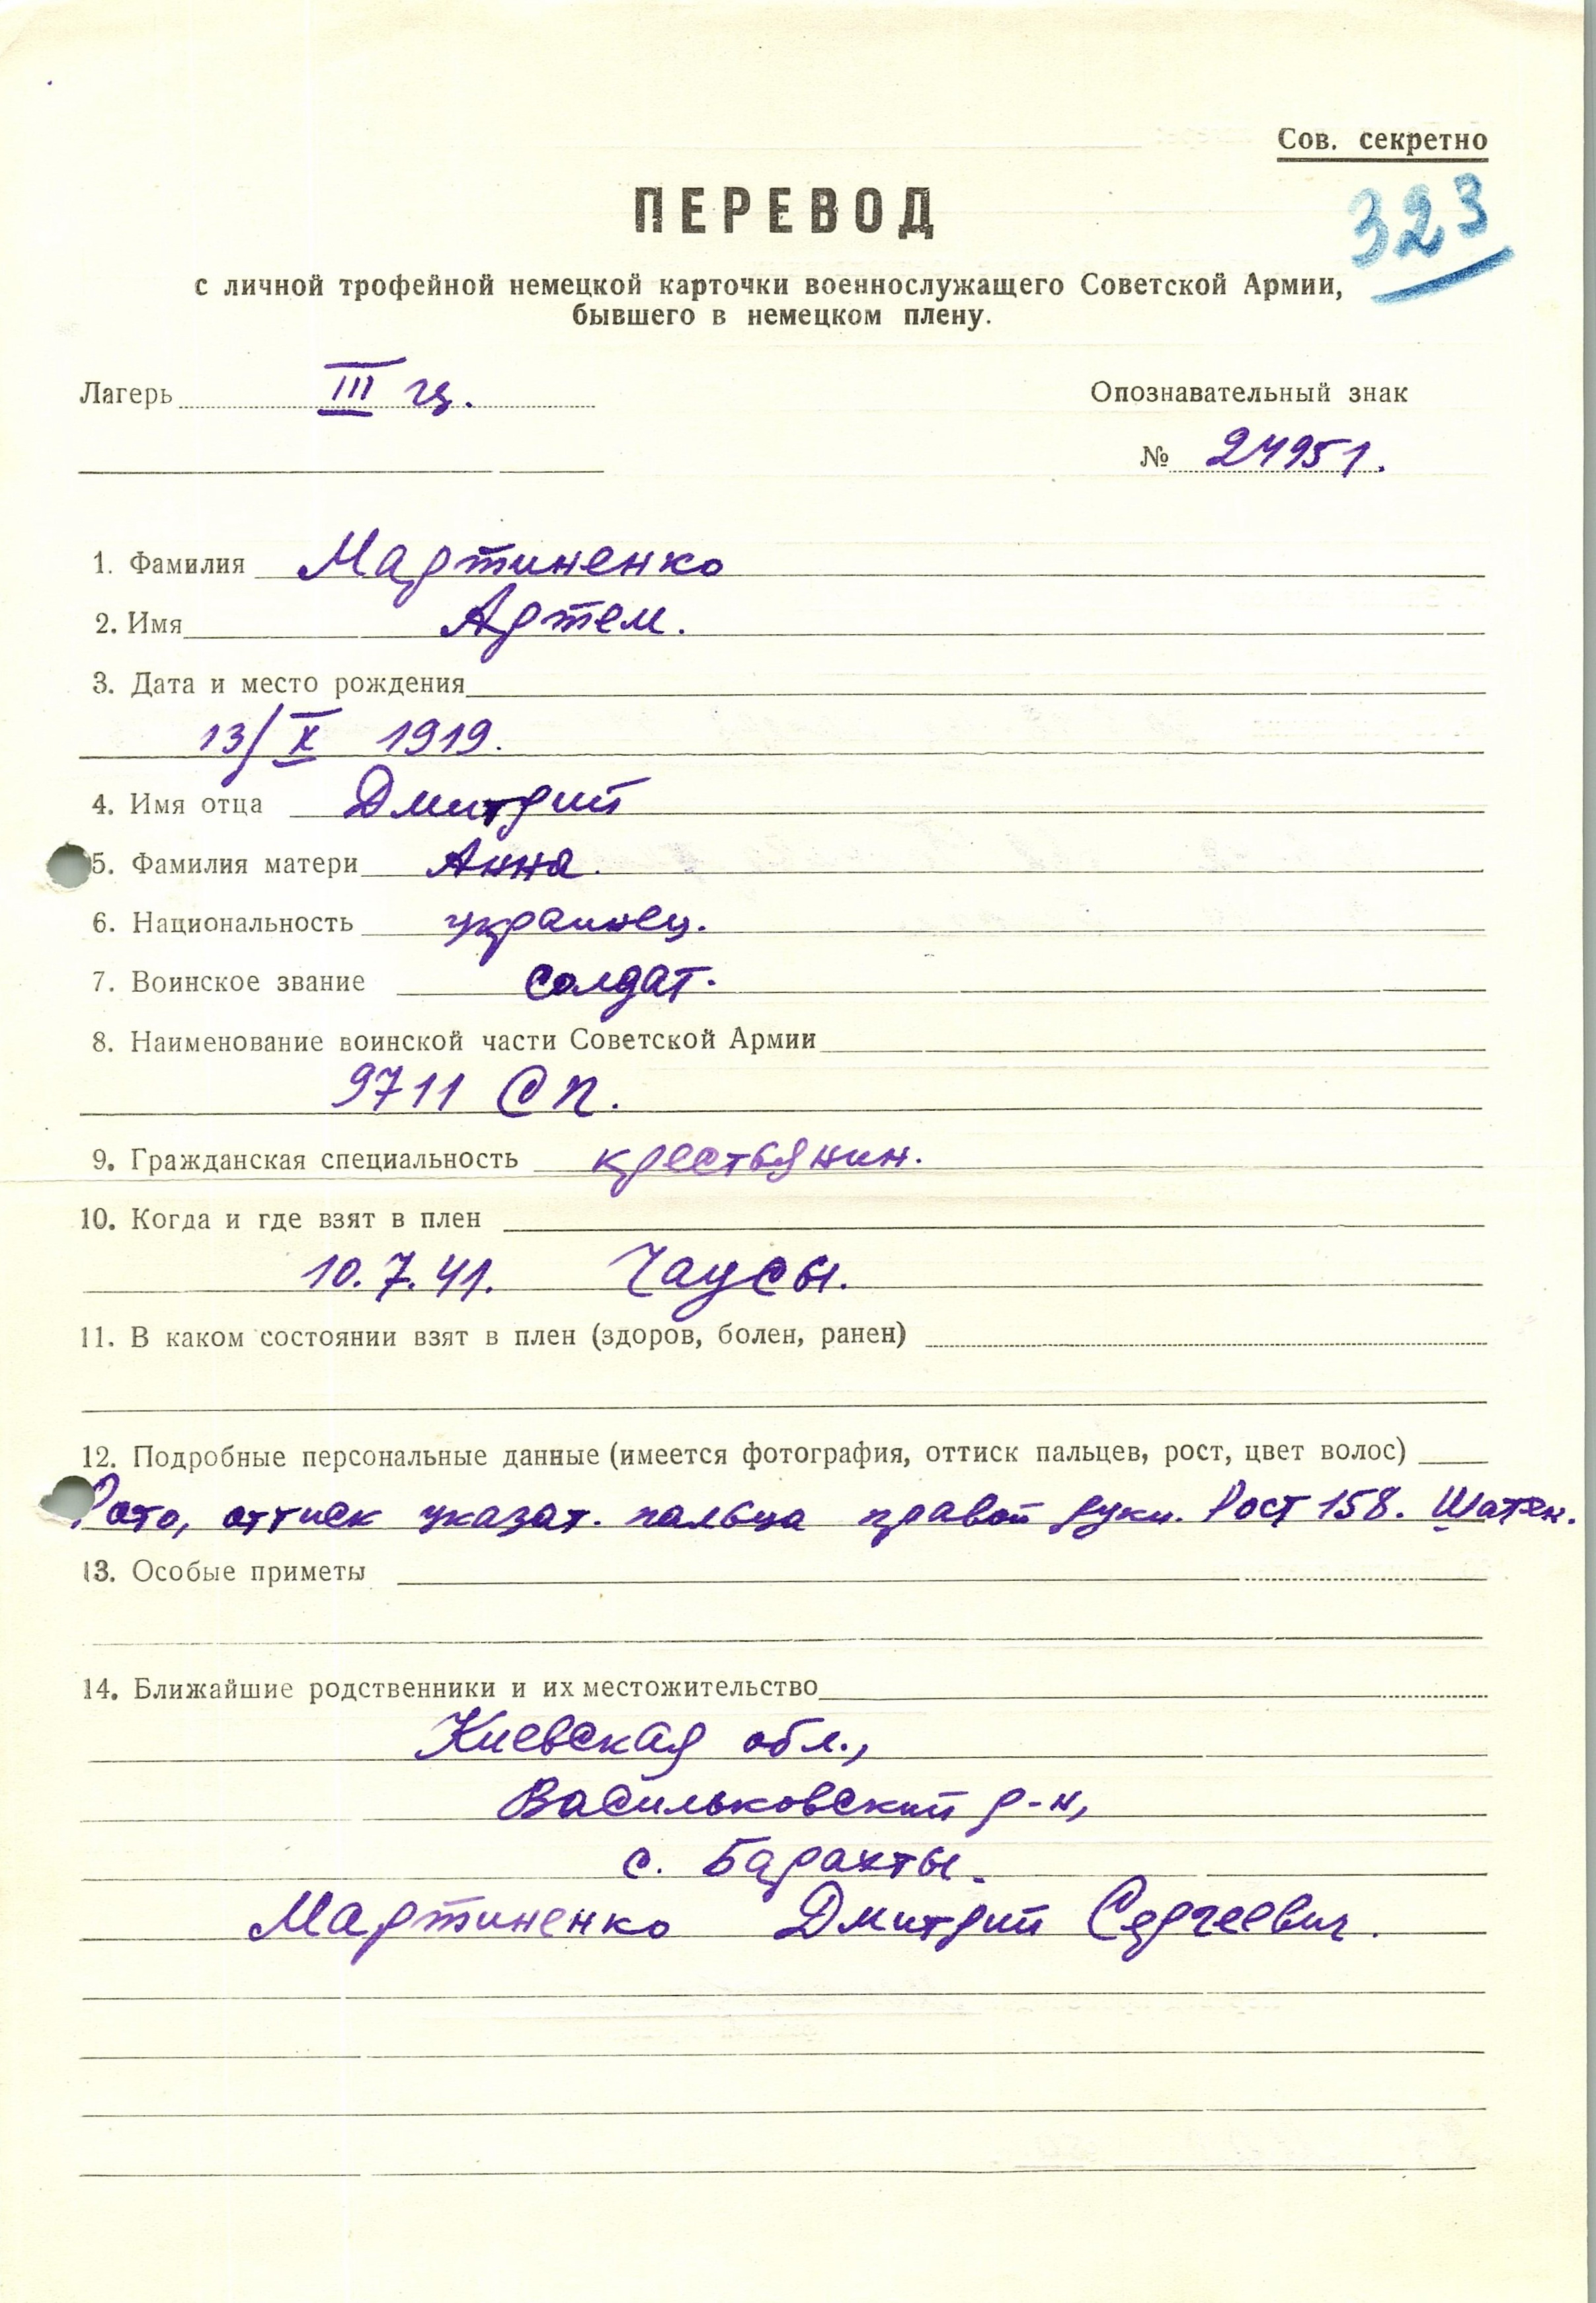 Сов. секретно
ПЕРЕВОД
323
с личной трофейной немецкой карточки военнослужащего Советской Армии,
бывшего в немецком плену.
Лагерь III гц. Опознавательный знак
№ 24951.
1. Фамилия Мартиненко
2. Имя Артем.
3. Дата и место рождения
13/X 1919.
4. Имя отца Дмитрий
5. Фамилия матери Анна.
6. Национальность украинец.
7. Воинское звание солдат.
8. Наименование воинской части Советской Армии
9711 СП.
9. Гражданская специальность крестьянин.
10. Когда и где взят в плен
10.7.41. Чаусы.
11. В каком состоянии взят в плен (здоров, болен, ранен)
12. Подробные персональные данные (имеется фотография, оттиск пальцев, рост, цвет волос)
Фото, оттиск указат. пальца правой руки. Рост 158. Шатен.
13. Особые приметы
14. Ближайшие родственники и их местожительство
Киевская обл.,
Васильковский р-н,
с. Барахты.
Мартиненко Дмитрий Сергеевич.